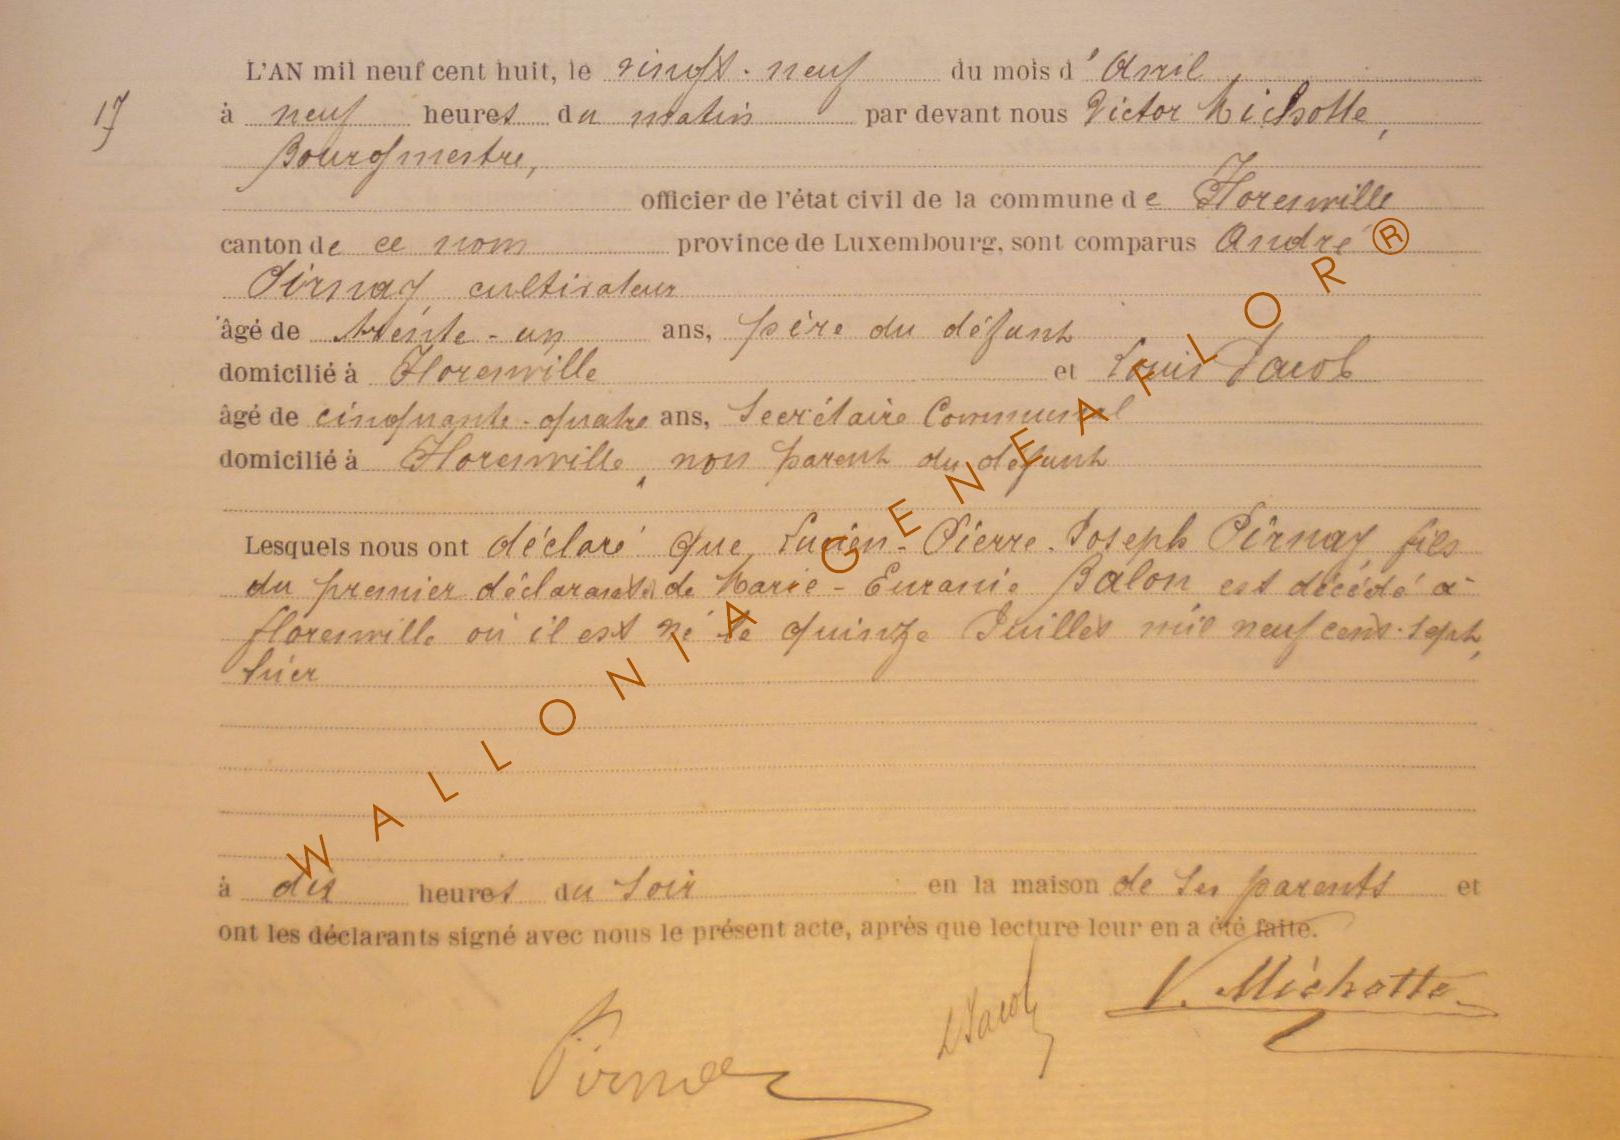 L'AN mil neuf cent huit, le vingt-neuf du mois d'Avril
17 à neuf heures du matin par devant nous Victor Michotte,
Bourgmestre,
officier de l'état civil de la commune de Florenville
canton de ce nom province de Luxembourg, sont comparus André
Pirnay cultivateur
âgé de trente-un ans, père du défunt
domicilié à Florenville et Louis Jacob
âgé de cinquante-quatre ans, Secrétaire Communal
domicilié à Florenville, non parent du défunt
Lesquels nous ont déclaré que Lucien-Pierre-Joseph Pirnay fils
du premier déclarant & de Marie-Euranie Balon est décédé à
florenville où il est né le quinze Juillet mil neuf cent-sept,
hier
à dix heures du soir en la maison de ses parents et
ont les déclarants signé avec nous le présent acte, après que lecture leur en a été faite.
V. Michotte
L Jacob
Pirnay
WALLONIA GENEAFLOR®